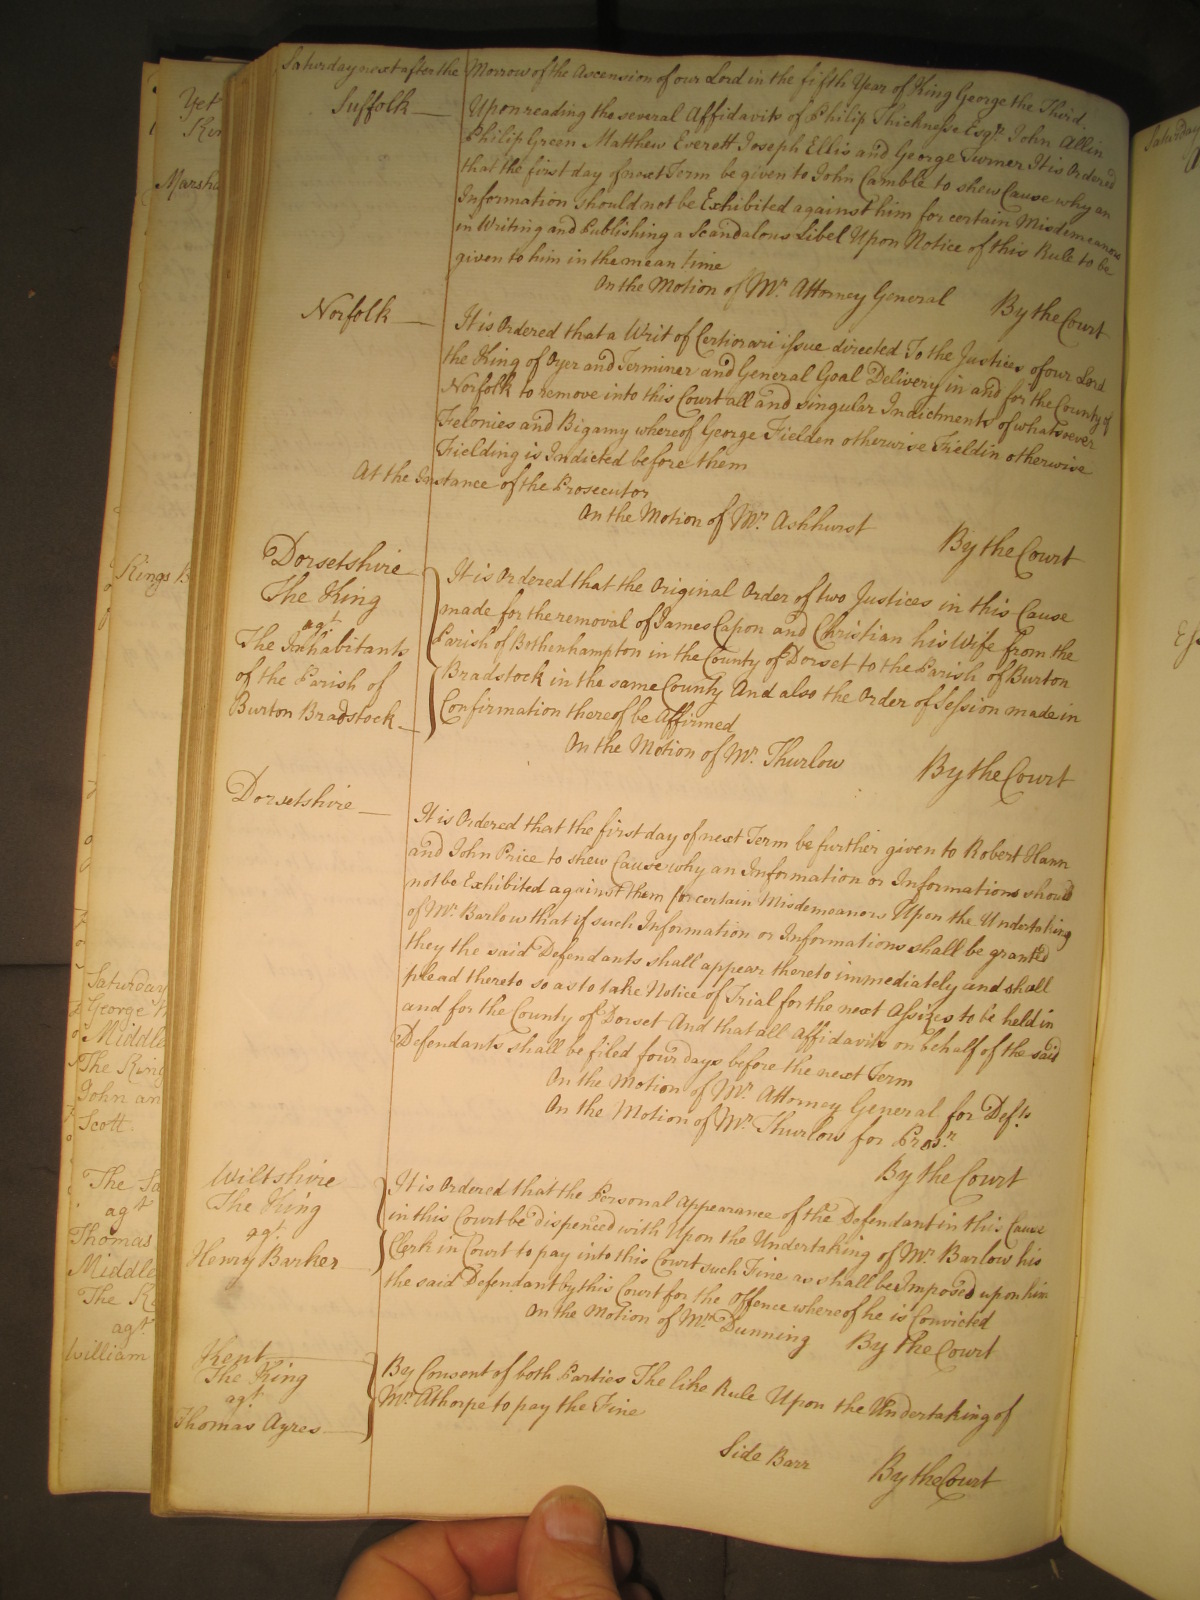 Saturday next after the Morrow of the Ascension of our Lord in the fifth Year of King George the Third.
Suffolk
Upon reading the several Affidavits of Philip Thicknesse Esqr. John Allin
Philip Green Matthew Everett Joseph Ellis and George Turner It is Ordered
that the first day of next Term be given to John Camble to shew Cause why an
Information should not be Exhibited against him for certain Misdemeanors
in Writing and Publishing a Scandalous Libel Upon Notice of this Rule to be
given to him in the mean time
On the Motion of Mr. Attorney General By the Court
Norfolk
It is Ordered that a Writ of Certiorari issue directed To the Justices of our Lord
the King of Oyer and Terminer and General Goal Delivery in and for the County of
Norfolk to remove into this Court all and singular Indictments of whatsoever
Felonies and Bigamy whereof George Fielden otherwise Fieldin otherwise
Fielding is Indicted before them
At the Instance of the Prosecutor
On the Motion of Mr. Ashhurst By the Court
Dorsetshire
The King
agt.
The Inhabitants
of the Parish of
Burton Bradstock
It is Ordered that the Original Order of two Justices in this Cause
made for the removal of James Capon and Christian his Wife from the
Parish of Bothenhampton in the County of Dorset to the Parish of Burton
Bradstock in the same County And also the Order of Session made in
Confirmation thereof be Affirmed
On the Motion of Mr. Thurlow By the Court
Dorsetshire
It is Ordered that the first day of next Term be further given to Robert Hann
and John Price to shew Cause why an Information or Informations should
not be Exhibited against them for certain Misdemeanors Upon the Undertaking
of Mr. Barlow that if such Information or Informations shall be granted
they the said Defendants shall appear thereto immediately and shall
plead thereto so as to take Notice of Trial for the next Assizes to be held in
and for the County of Dorset And that all Affidavits on behalf of the said
Defendants shall be filed four days before the next Term
On the Motion of Mr. Attorney General for Defts.
On the Motion of Mr. Thurlow for Prosr.
By the Court
Wiltshire
The King
agt.
Henry Barker
It is Ordered that the Personal Appearance of the Defendant in this Cause
in this Court be dispenced with Upon the Undertaking of Mr. Barlow his
Clerk in Court to pay into this Court such Fine as shall be Imposed upon him
the said Defendant by this Court for the Offence whereof he is Convicted
On the Motion of Mr. Dunning By the Court
Kent
The King
agt.
Thomas Ayres
By Consent of both Parties The like Rule Upon the Undertaking of
Mr. Athorpe to pay the Fine
Side Barr By the Court
Yet
Marsha
Kings B
Saturday
George
Middle
The King
John an
Scott
The Sa
agt
Thomas
Middle
The K
agt
William
Saturday